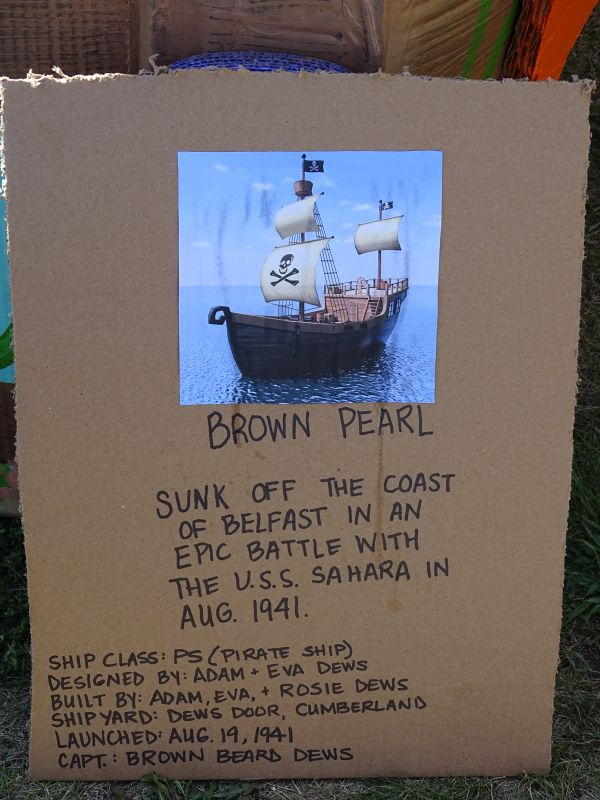 BROWN PEARL
SUNK OFF THE COAST
OF BELFAST IN AN
EPIC BATTLE WITH
THE U.S.S. SAHARA IN
AUG. 1941.
SHIP CLASS: PS (PIRATE SHIP)
DESIGNED BY: ADAM + EVA DEWS
BUILT BY: ADAM, EVA, + ROSIE DEWS
SHIPYARD: DEWS DOOR, CUMBERLAND
LAUNCHED: AUG. 19, 1941
CAPT.: BROWN BEARD DEWS